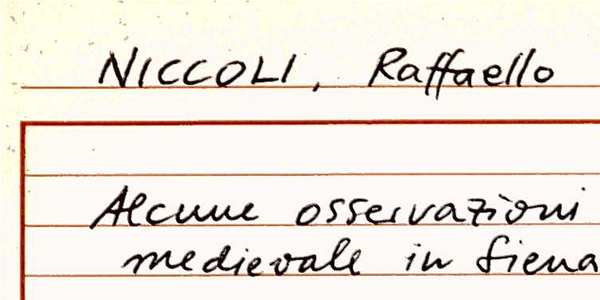 NICCOLI, Raffaello
Alcune osservazioni
medievale in Siena